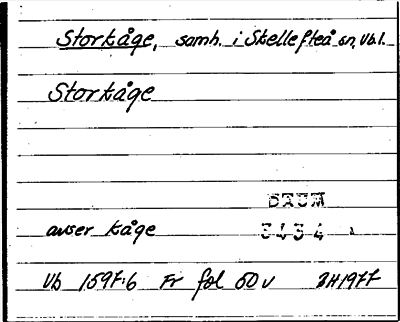 Storkåge, samh. i Skellefteå sn, Vb.l.
Storkåge
DAUM
avser Kåge 3434
Vb 1597:6 Fr fol 50 v BH1977